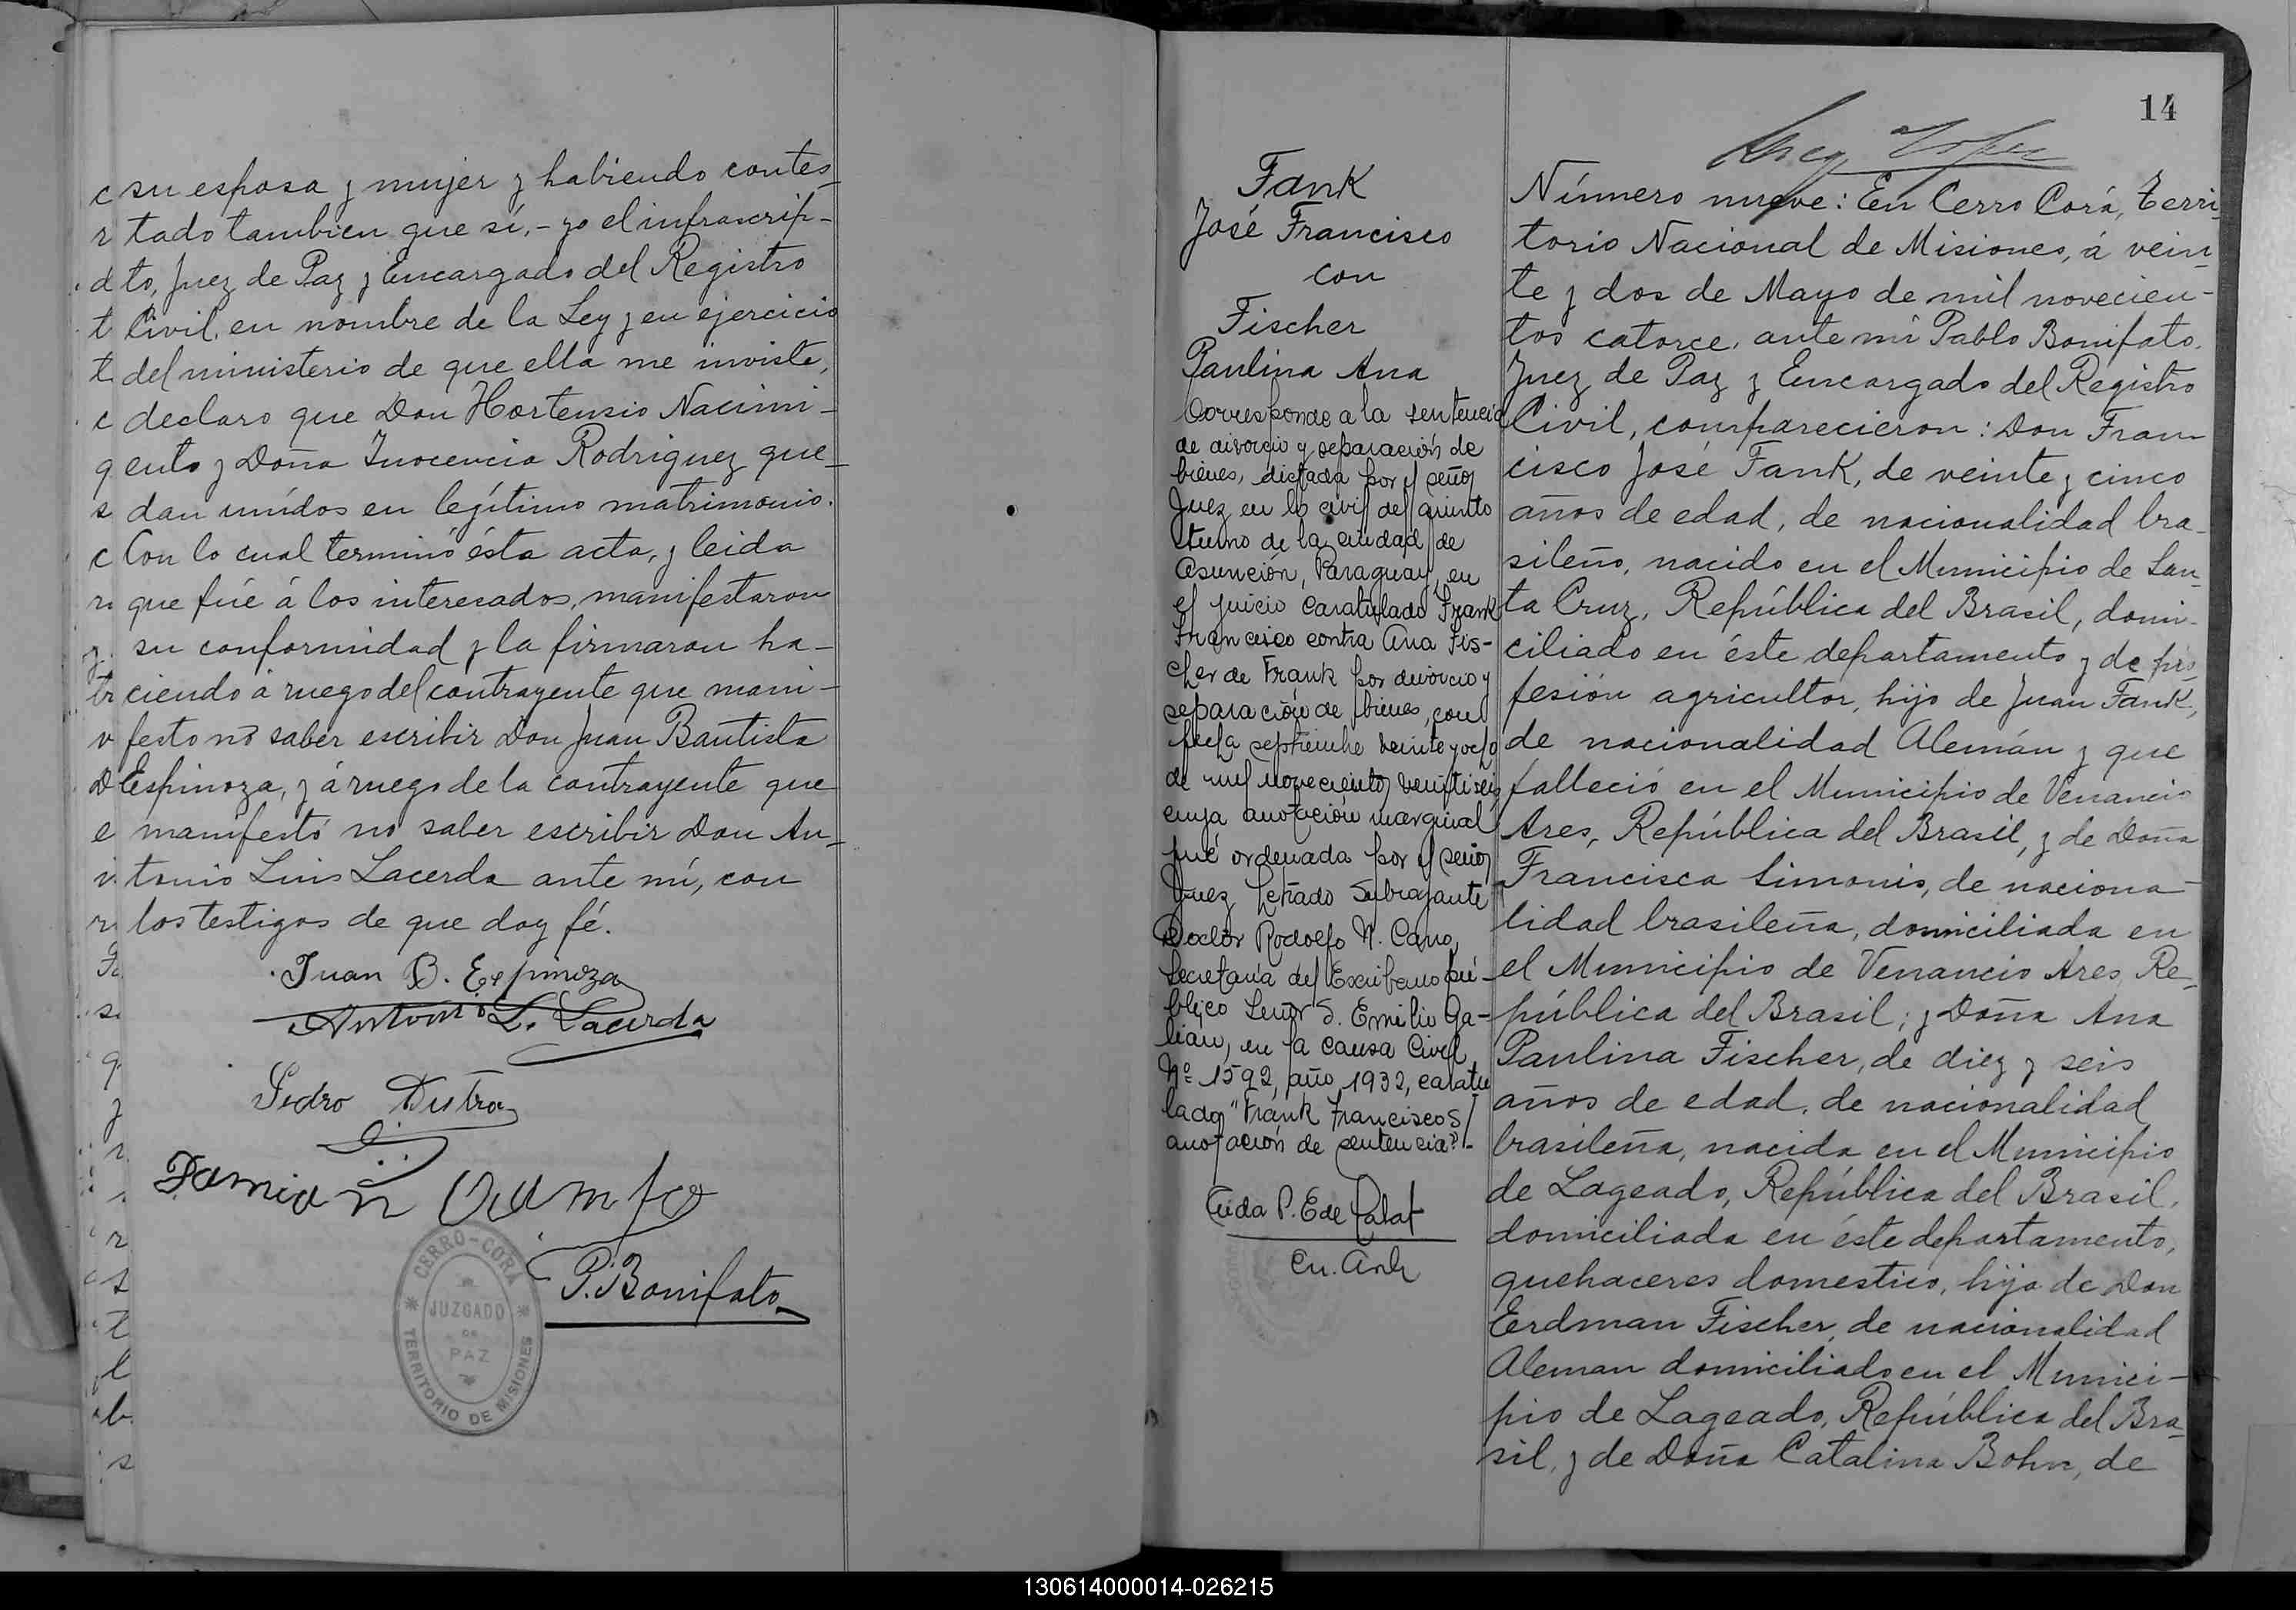 su esposa y mujer y habiendo contes-
tado tambien que sí,- yo el infrascrip-
to, Juez de Paz y Encargado del Registro
Civil, en nombre de la Ley y en ejercicio
del ministerio de que ella me inviste,
declaro que Don Hortensio Nacimi-
ento y Doña Inocencia Rodriguez que-
dan unídos en legítimo matrimonio.
Con lo cual terminó ésta acta, y leida
que fué á los interesados, manifestaron
su conformidad y la firmaron ha-
ciendo á ruego del contrayente que mani-
festo no saber escribir Don Juan Bautista
Espinoza, y á ruego de la contrayente que
manifestó no saber escribir Don An-
tonio Luis Lacerda ante mí, con
los testigos de que doy fé.
Juan B. Espinoza
Antonio L. Lacerda
Pedro Dutra
Damian
P. Bonifato
CERRO-CORÁ
JUZGADO
DE
PAZ
TERRITORIO DE MISIONES
14
Fank
José Francisco
con
Fischer
Paulina Ana
Corresponde a la sentencia
de divorcio y separación de
bienes, dictada por el señor
Juez en lo civil del quinto
turno de la ciudad de
Asunción, Paraguay, en
el juicio caratulado Frank
Francisco contra Ana Fis-
cher de Frank por divorcio y
separación de bienes, con
fecha septiembre veinte y ocho
de mil novecientos veintiseis
cuya anotación marginal
fué ordenada por el señor
Juez Letrado Subrogante
Doctor Rodolfo N. Cano,
Secretaría del Escribano pú-
blico Señor S. Emilio Ga-
lian, en la causa Civil
Nº 1592, año 1932, caratu
lado "Frank Francisco S/
anotación de sentencia".-
P. E de
En. Arch
Número nueve: En Cerro Corá, Terri
torio Nacional de Misiones, á vein-
te y dos de Mayo de mil novecien-
tos catorce, ante mí Pablo Bonifato,
Juez de Paz y Encargado del Registro
Civil, comparecieron: Don Fran
cisco José Fank, de veinte y cinco
años de edad, de nacionalidad bra-
sileño, nacido en el Municipio de San-
ta Cruz, República del Brasil, domi-
ciliado en éste departamento y de pro-
fesión agricultor, hijo de Juan Fank,
de nacionalidad Alemán y que
falleció en el Municipio de Venancio
Ares, República del Brasil, y de Doña
Francisca Simonis, de naciona-
lidad brasileña, domiciliada en
el Municipio de Venancio Ares, Re-
pública del Brasil; y Doña Ana
Paulina Fischer, de diez y seis
años de edad, de nacionalidad
brasileña, nacida en el Municipio
de Lageado, República del Brasil,
domiciliada en éste departamento,
quehaceres domestico, hija de Don
Eerdman Fischer, de nacionalidad
Aleman domiciliado en el Munici-
pio de Lageado, República del Bra-
sil, y de Doña Catalina Bohn, de
130614000014-026215